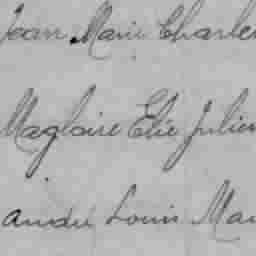 Jean Marie Charles
Magloire Elie Julien
André Louis Mar